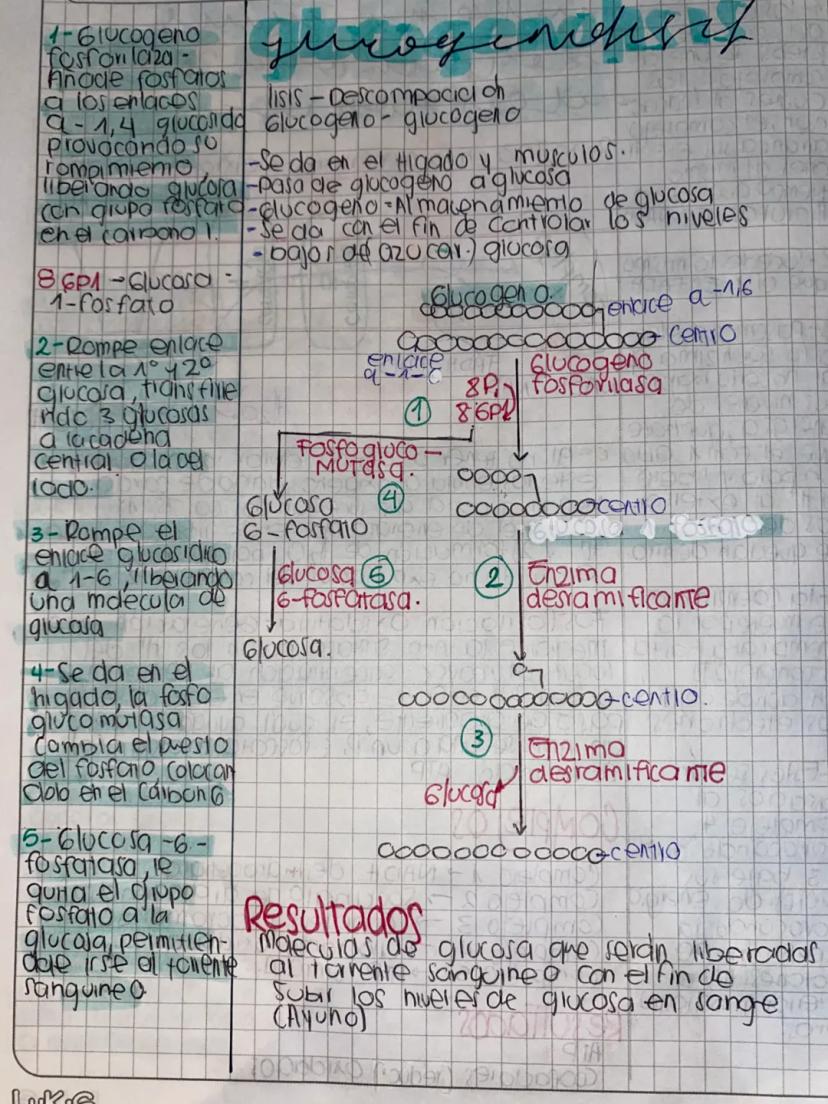 1-Glucogeno
fosforilaza-
Añade fosfatos
a los enlaces
a-1,4 glucosido
provocando su
rompimiento,
liberando glucosa
con grupo fosfato
en el carbono 1.
8 G P1 → Glucosa -
1-fosfato
2-Rompe enlace
entre la 1° y 2°
glucosa, transfirie
ndo 3 glucosas
a la cadena
central o la del
lado.
3-Rompe el
enlace glucosidico
a 1-6, liberando
una molecula de
glucosa
4-Se da en el
higado, la fosfo
gluco mutasa
cambia el puesto
del fosfato, colocan
dolo en el carbon 6
5-Glucosa-6-
fosfatasa, le
quita el grupo
fosfato a la
glucosa, permitien-
dole irse al torrente
sanguineo
lisis - Descomposicion
Glucogeno - glucogeno
-Se da en el Higado y musculos.
-Pasa de glucogeno a glucosa
-Glucogeno = Almacenamiento de glucosa
-Se da con el fin de controlar los niveles
-bajos de (azucar) glucosa
Glucogeno.
enlace a-1,6
centro
enlace
Glucogeno
fosforilasa
8Pi
8 GP1
①
Fosfogluco-
Mutasa.
④
Glucosa
6-fosfato
centro
Glucosa ⑥
6-fosfatasa.
② Enzima
desramificante
Glucosa.
centro.
③ Enzima
desramificante
Glucosa
centro
Resultados
Moleculas de glucosa que seran liberadas
al torrente sanguineo con el fin de
subir los niveles de glucosa en sangre
(Ayuno)